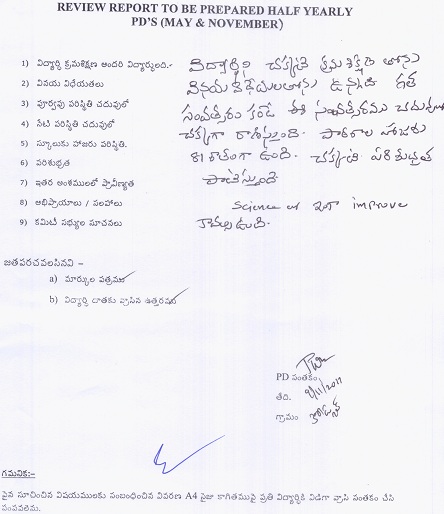 REVIEW REPORT TO BE PREPARED HALF YEARLY
PD'S (MAY & NOVEMBER)
1) విద్యార్థి క్రమశిక్షణ అందరి విద్యార్థులది.-
2) వినయ విధేయతలు
3) పూర్వపు పరిస్థితి చదువులో
4) నేటి పరిస్థితి చదువులో
5) స్కూలుకు హాజరు పరిస్థితి.
6) పరిశుభ్రత
7) ఇతర అంశములలో ప్రావీణ్యత
8) అభిప్రాయాలు / సలహాలు
9) కమిటీ సభ్యుల సూచనలు
విద్యార్థిని చక్కటి క్రమశిక్షణ తోను
వినయ విధేయతలతోను ఉన్నది గత
సంవత్సరం కంటే ఈ సంవత్సరము చదువులో
చక్కగా రాణిస్తుంది. పాఠశాల హాజరు
81 శాతంగా ఉంది. చక్కటి పరిశుభ్రత
పాటిస్తుంది
science లో ఇంకా improve
కావల్సి ఉంది.
జతపరచవలసినవి –
a) మార్కుల పత్రము
b) విద్యార్థి దాతకు వ్రాసిన ఉత్తరము
PD సంతకం
తేది. 9/11/2011
గ్రామం
గమనిక:-
పైన సూచించిన విషయములకు సంబంధించిన వివరణ A4 సైజు కాగితముపై ప్రతి విద్యార్థికి విడిగా వ్రాసి సంతకం చేసి
పంపవలెను.